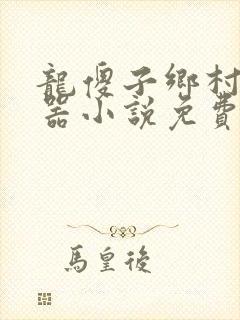 龍傻子鄉村
器小說免費
馬皇後